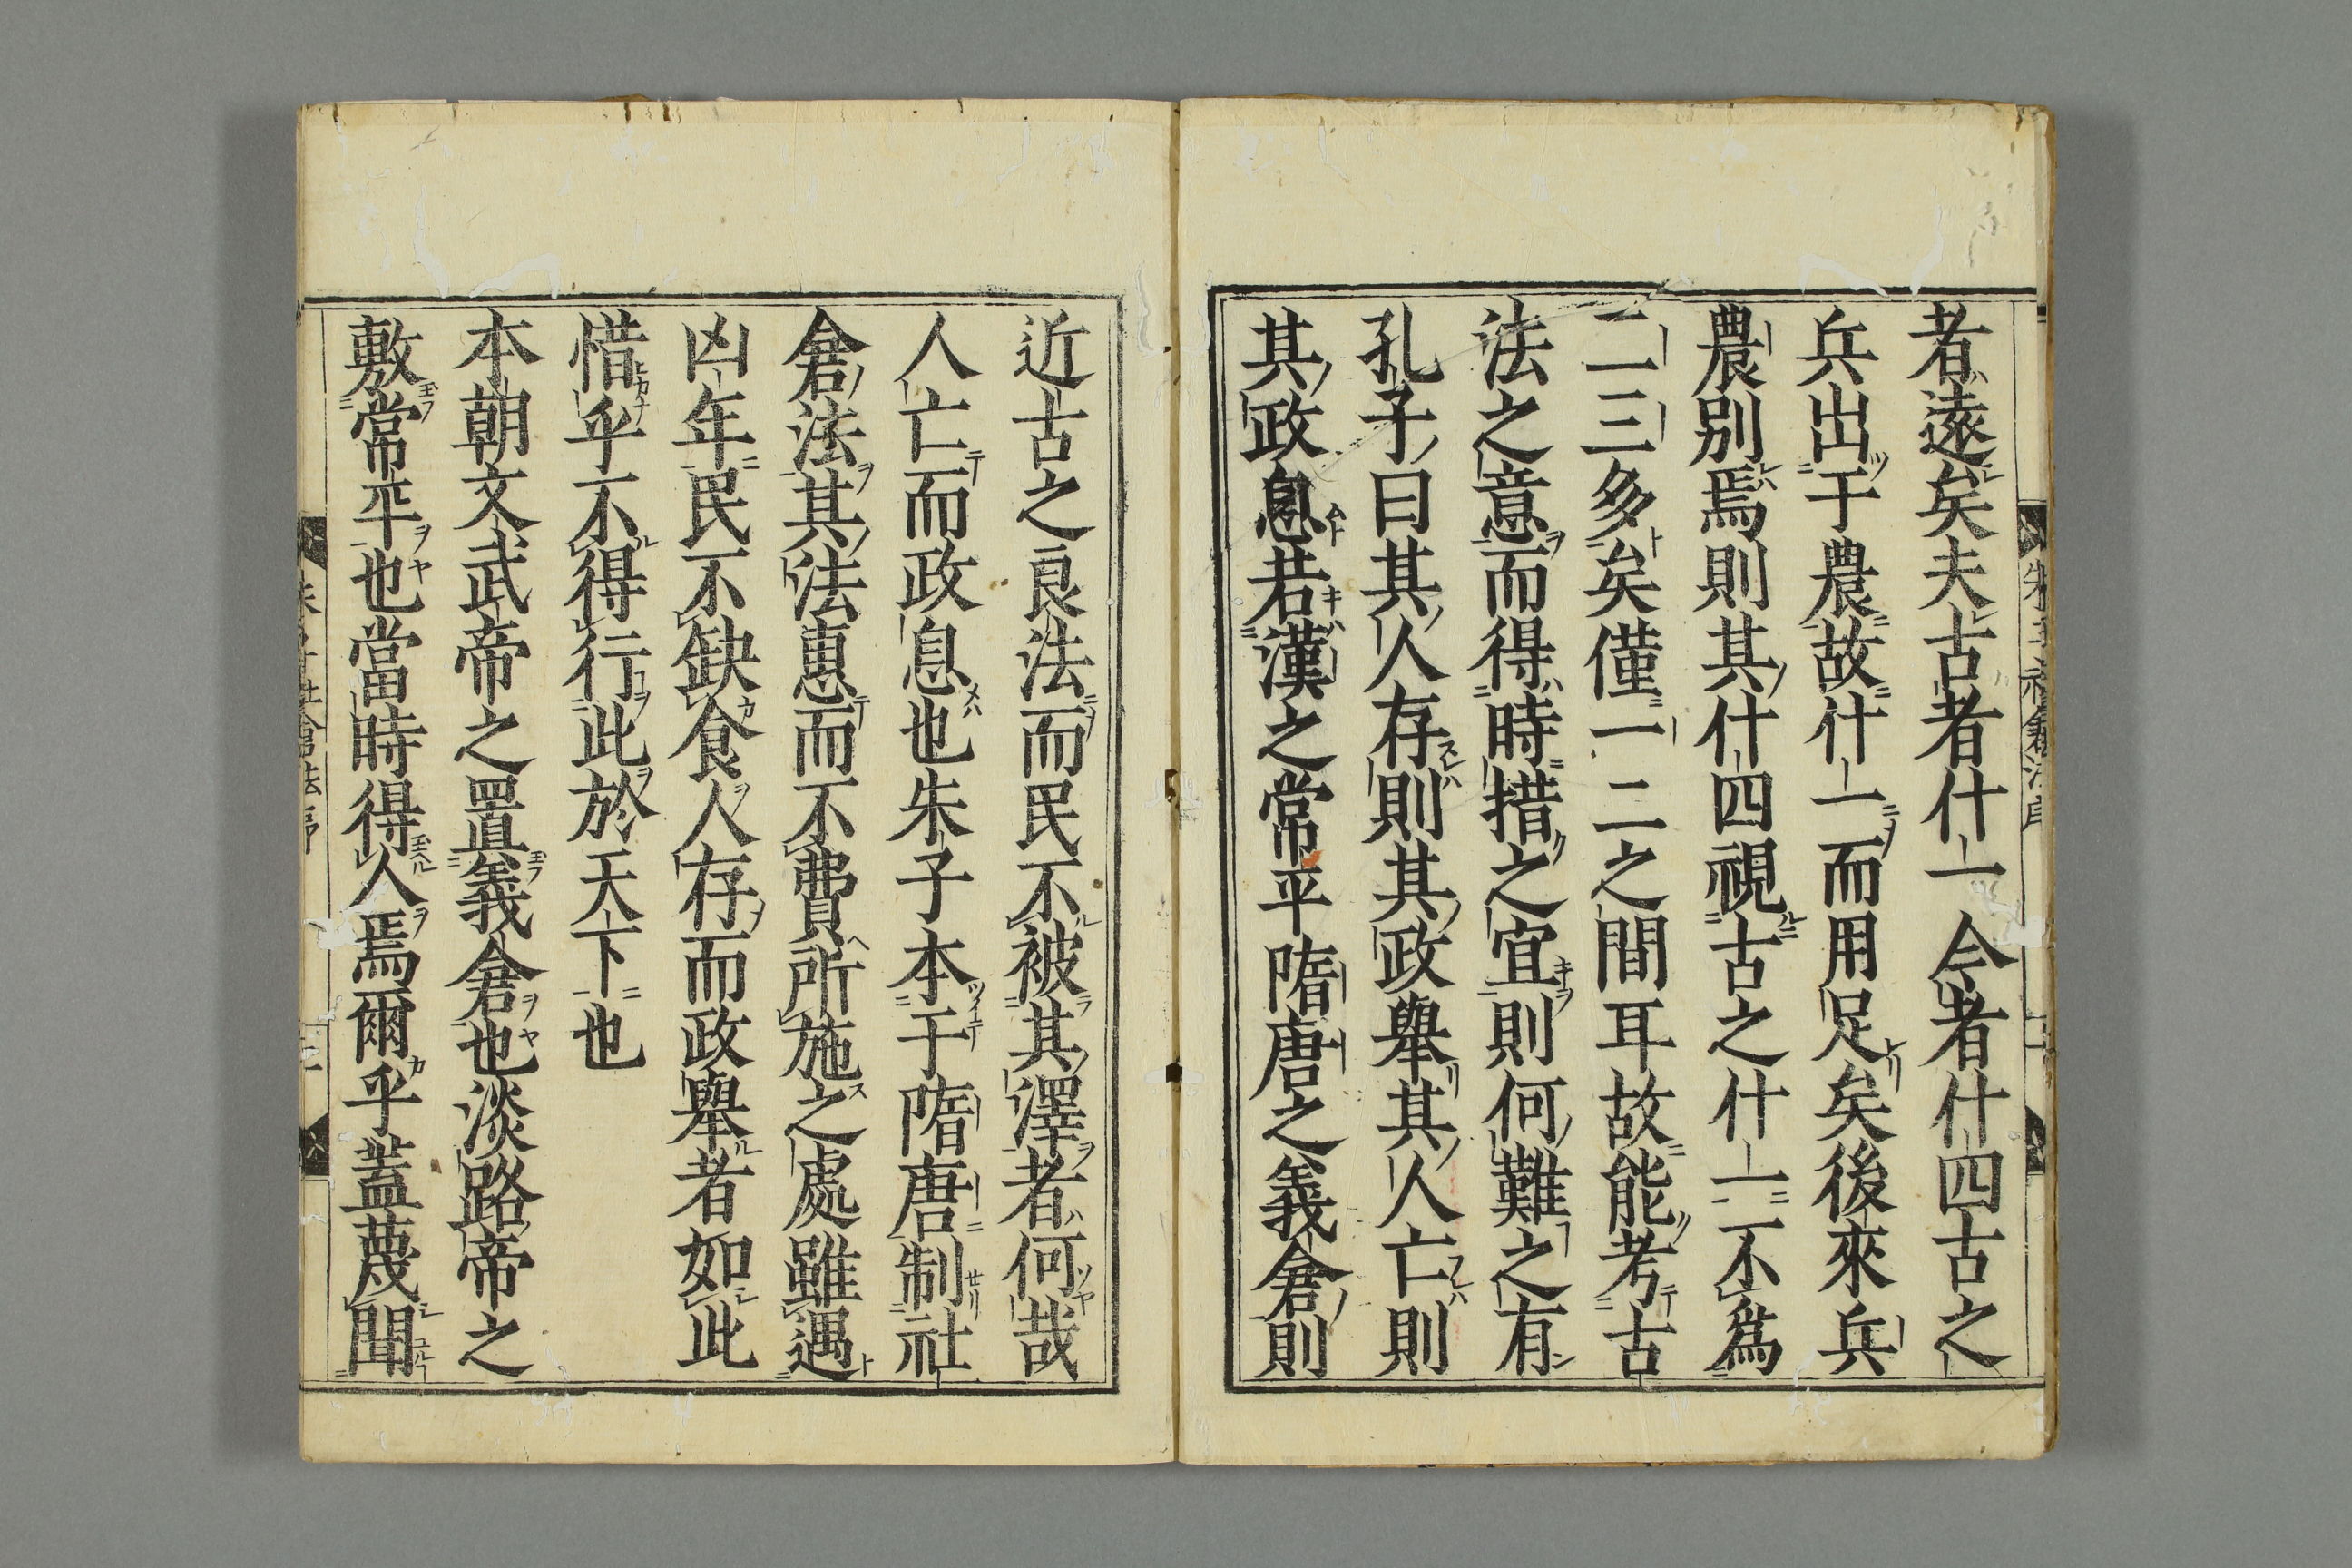 者遠矣夫古者什一今者什四古之
兵出于農故什一而用足矣後來兵
農別焉則其什四視古之什一不爲
二三多矣僅一二之間耳故能考古
法之意而得時措之宜則何難之有
孔子曰其人存則其政擧其人亡則
其政息若漢之常平隋唐之義倉則
近古之良法而民不被其澤者何哉
人亡而政息也朱子本于隋唐制社
倉法其法惠而不費所施之處雖遇
凶年民不缺食人存而政擧者如此
惜乎不得行此於天下也
本朝文武帝之置義倉也淡路帝之
敷常平也當時得人焉爾乎蓋蔑聞